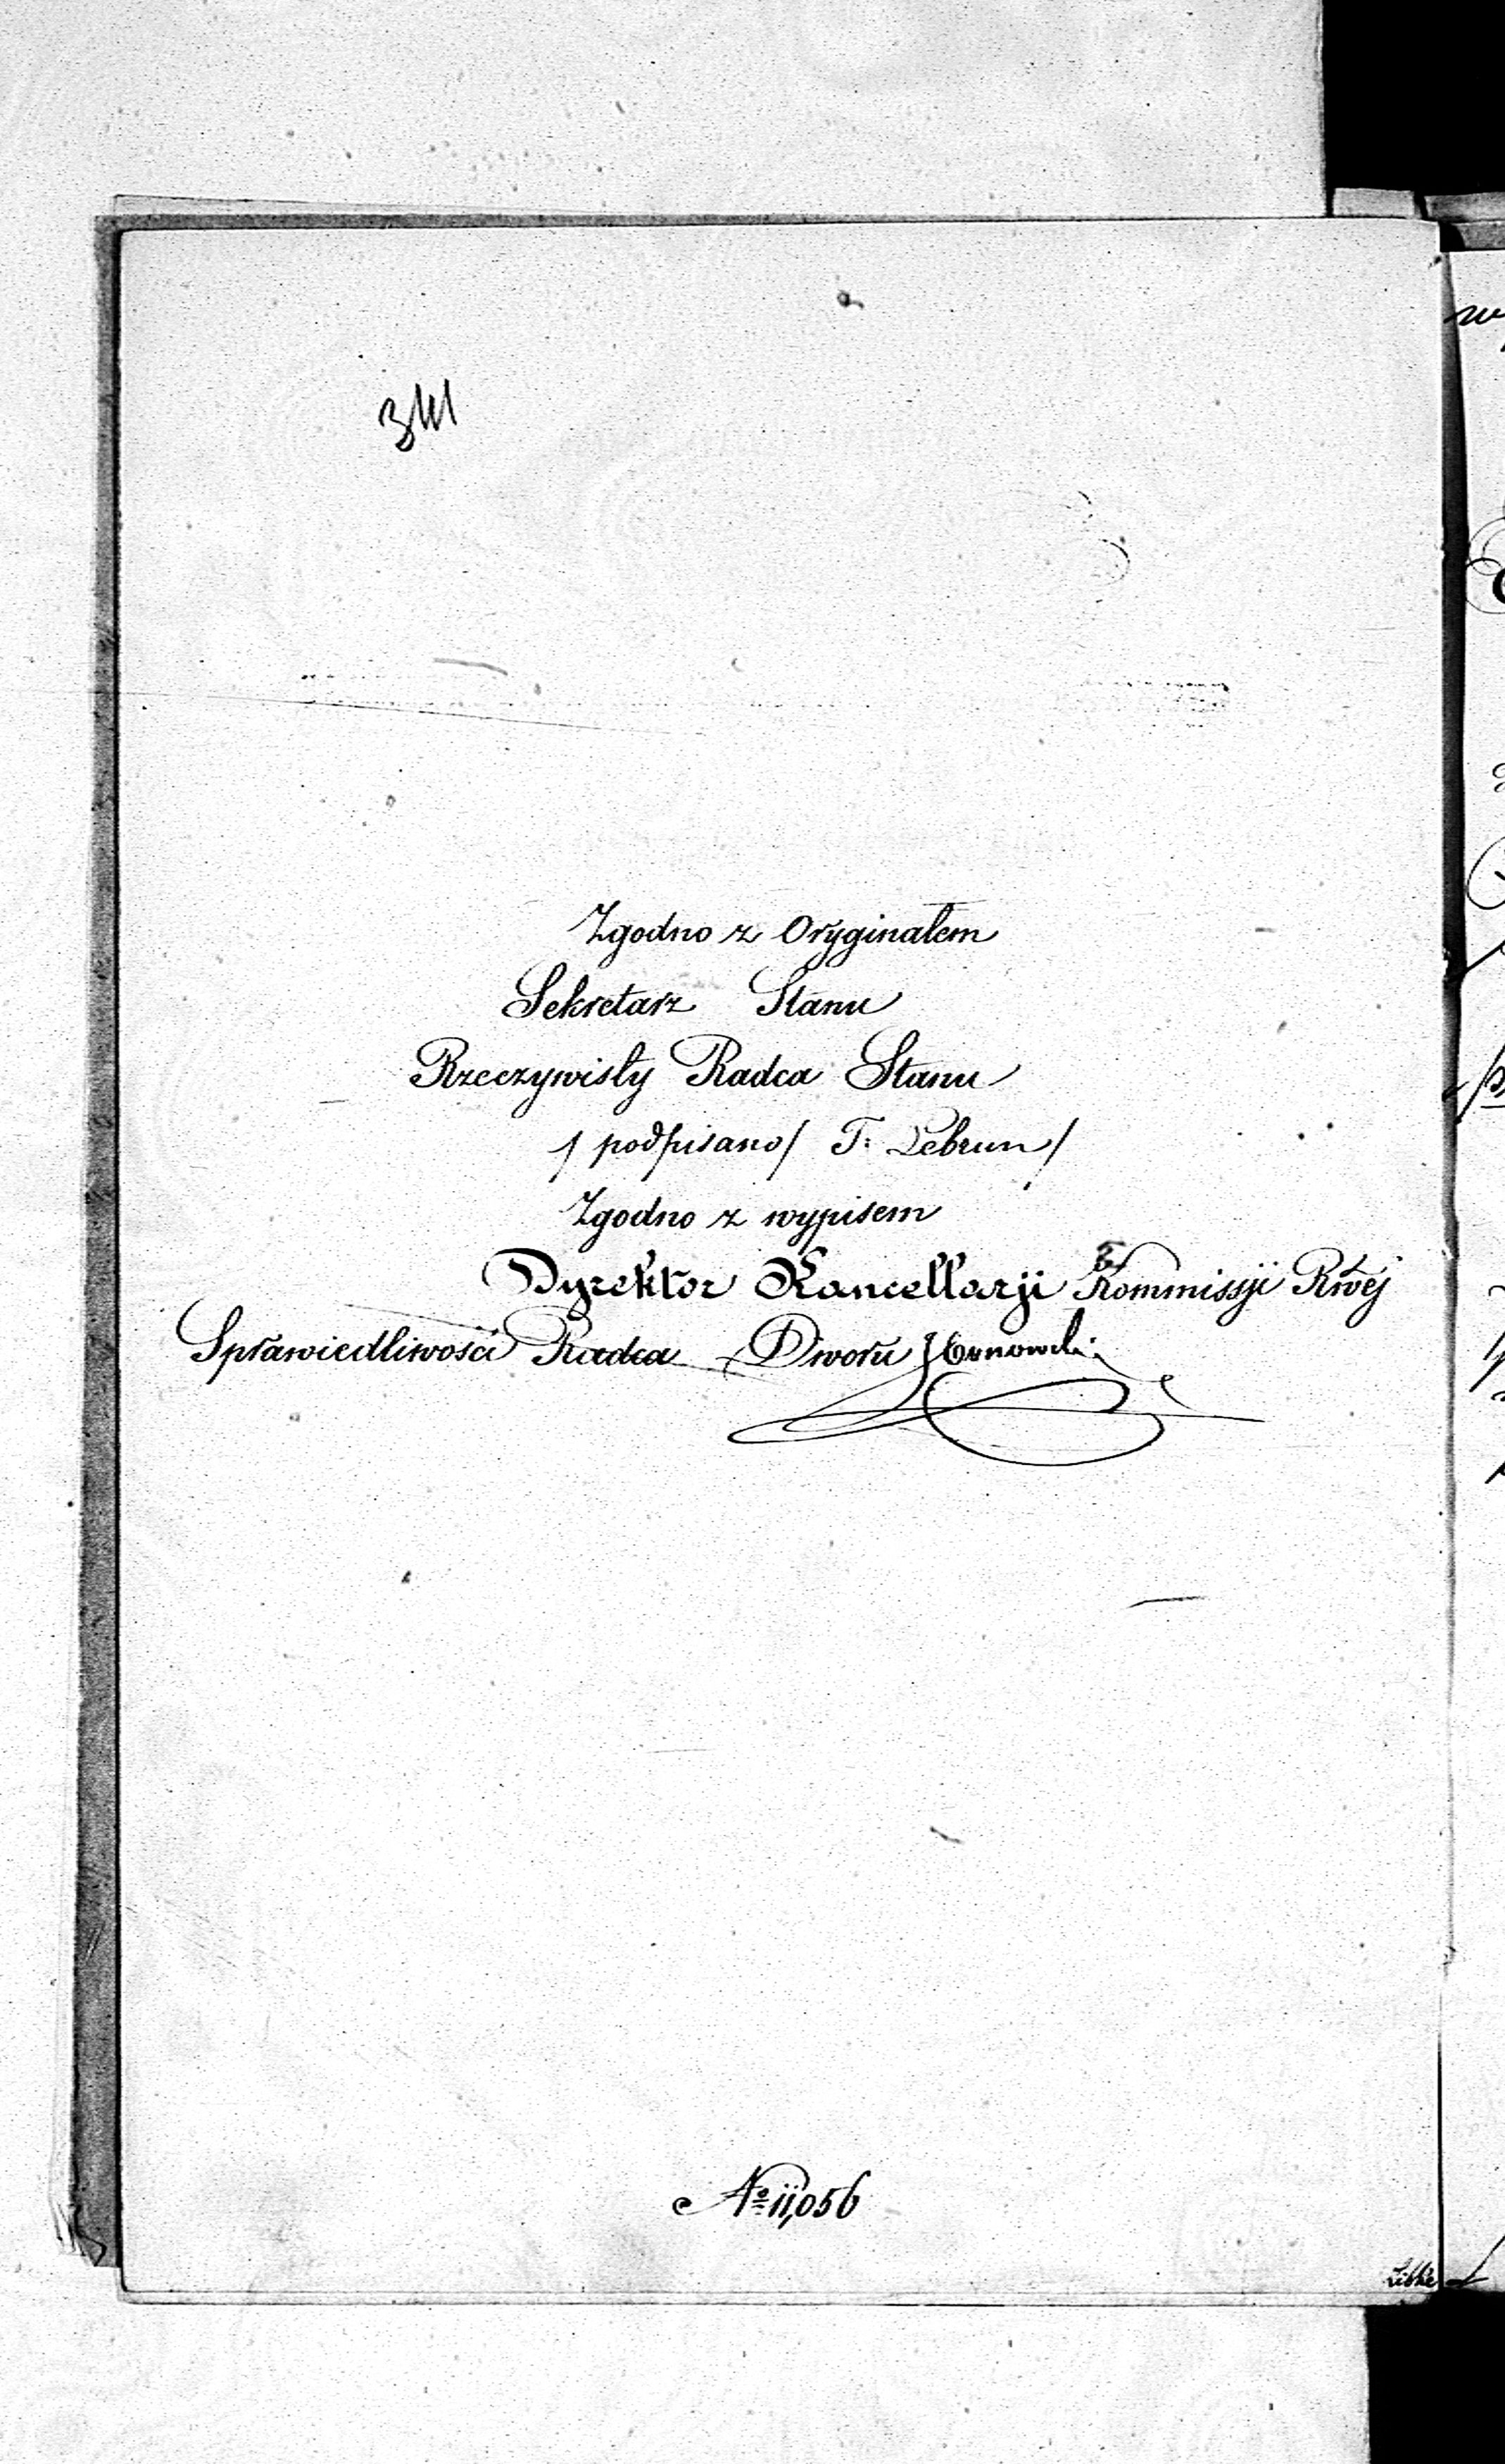 341
Zgodno z Oryginałem
Sekretarz Stanu
Rzeczywisty Radca Stanu
/ podpisano / T: Lebrun /
Zgodno z wypisem
Dyrektor Kancellarji Kommissji Rwéj
Sprawiedliwości Radca Dworu
№ 11,056